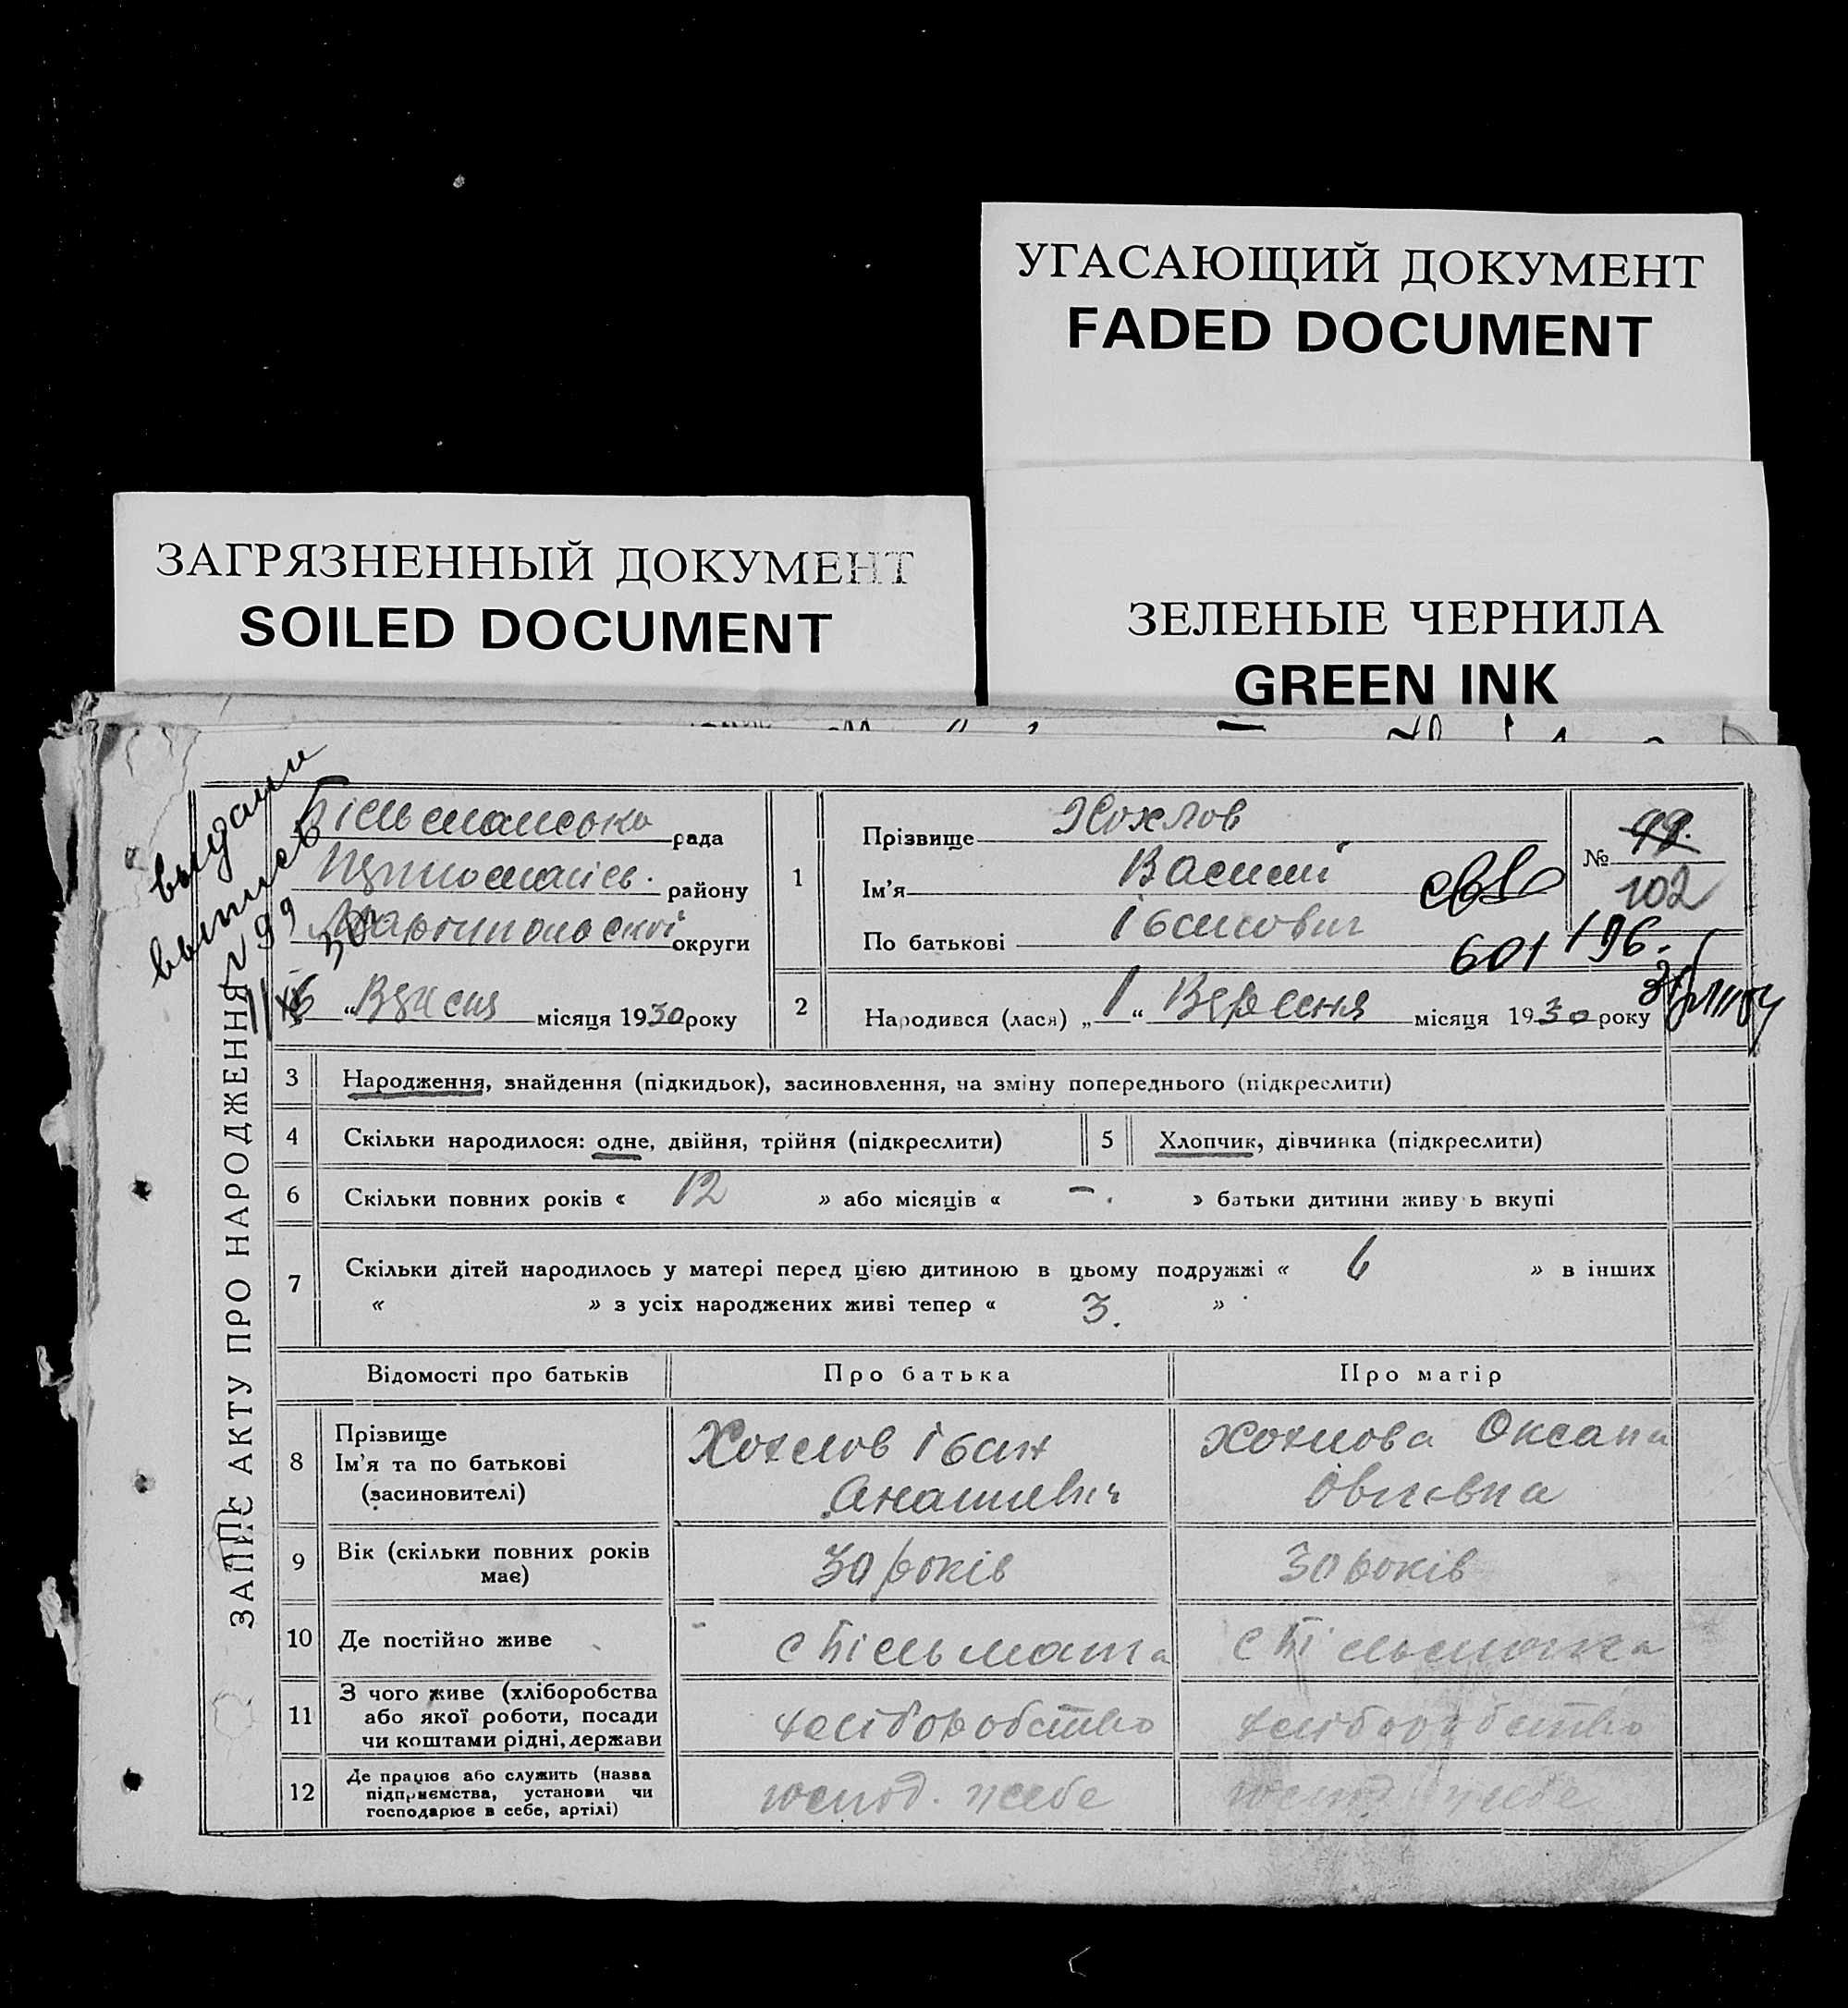 УГАСАЮЩИЙ ДОКУМЕНТ
FADED DOCUMENT
ЗАГРЯЗНЕННЫЙ ДОКУМЕНТ
SOILED DOCUMENT
ЗЕЛЕНЫЕ ЧЕРНИЛА
GREEN INK
выдали
ЗАПИС АКТУ ПРО НАРОДЖЕННЯ
рада
району
округи
місяця 1930 року
1
Прізвище Хохлов
Ім'я Василій
По батькові Іванович
№ 49.
102
601 196.
2 Народився (лася) „ 1 “ Вересня місяця 1930 року
3 Народження, знайдення (підкидьок), засиновлення, на зміну попереднього (підкреслити)
4 Скільки народилося: одне, двійня, трійня (підкреслити) 5 Хлопчик, дівчинка (підкреслити)
6 Скільки повних років « 12 » або місяців « – . » батьки дитини живу ь вкупі
7 Скільки дітей народилось у матері перед цією дитиною в цьому подружжі « 6 » в інших
« » з усіх народжених живі тепер « 3. »
Відомості про батьків Про батька Про матір
8 Прізвище
Ім'я та по батькові
(засиновителі)
Хохлов Іван
Хохлова Оксана
9 Вік (скільки повних років має) 30 років 30 років
10 Де постійно живе с Більманка с Більманка
11 З чого живе (хліборобства
або якої роботи, посади
чи коштами рідні, держави
хліборобство хліборобство
12 Де працює або служить (назва
підприємства, установи чи
господарює в себе, артілі)
господ. в себе господ. в себе